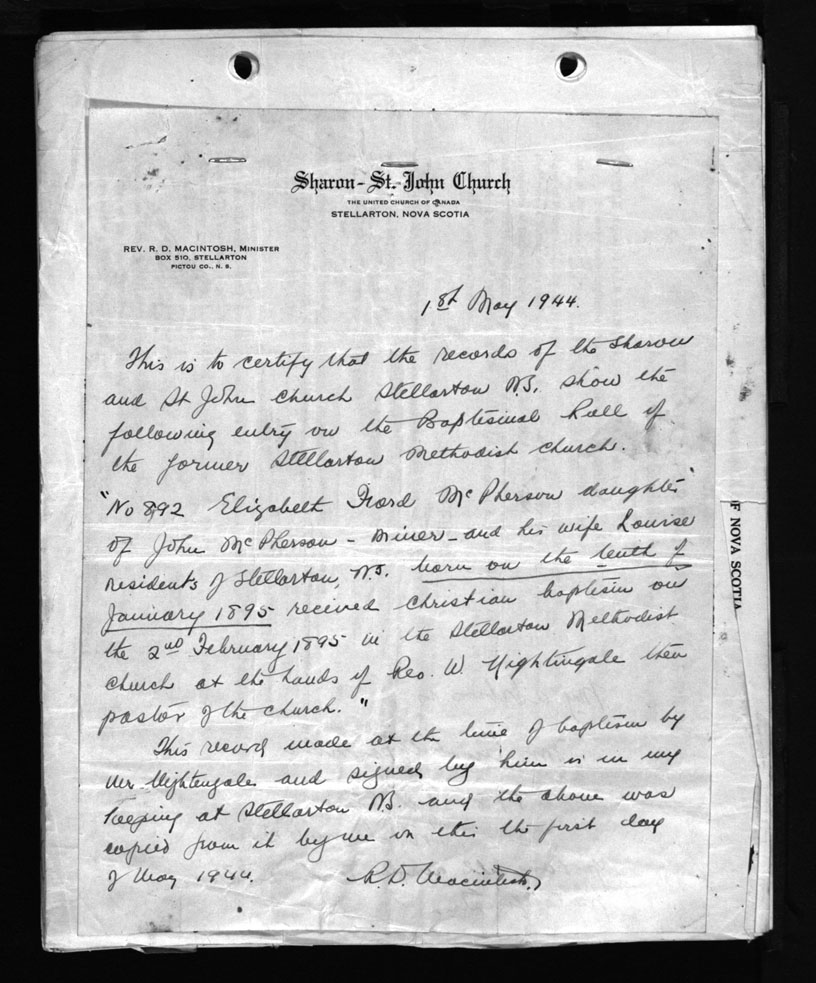 Sharon-St. John Church
THE UNITED CHURCH OF CANADA
STELLARTON, NOVA SCOTIA
REV. R. D. MACINTOSH, MINISTER
BOX 510, STELLARTON
PICTOU CO., N. S.
1st May 1944.
This is to certify that the records of the Sharon
and St John Church Stellarton N.S. show the
following entry on the Baptismal Roll of
the former Stellarton Methodist church.
"No 892 Elizabeth Ford McPherson daughter
of John McPherson - Miner - and his wife Louise
residents of Stellarton, N.S. born on the tenth of
January 1895 received Christian baptism on
the 2nd February 1895 in the Stellarton Methodist
church at the hands of Rev. W. Nightingale then
pastor of the church."
This record made at the time of baptism by
Mr. Nightengale and signed by him is in my
keeping at Stellarton N.S. and the above was
copied from it by me on this the first day
of May 1944. R. D. Macintosh
F NOVA SCOTIA